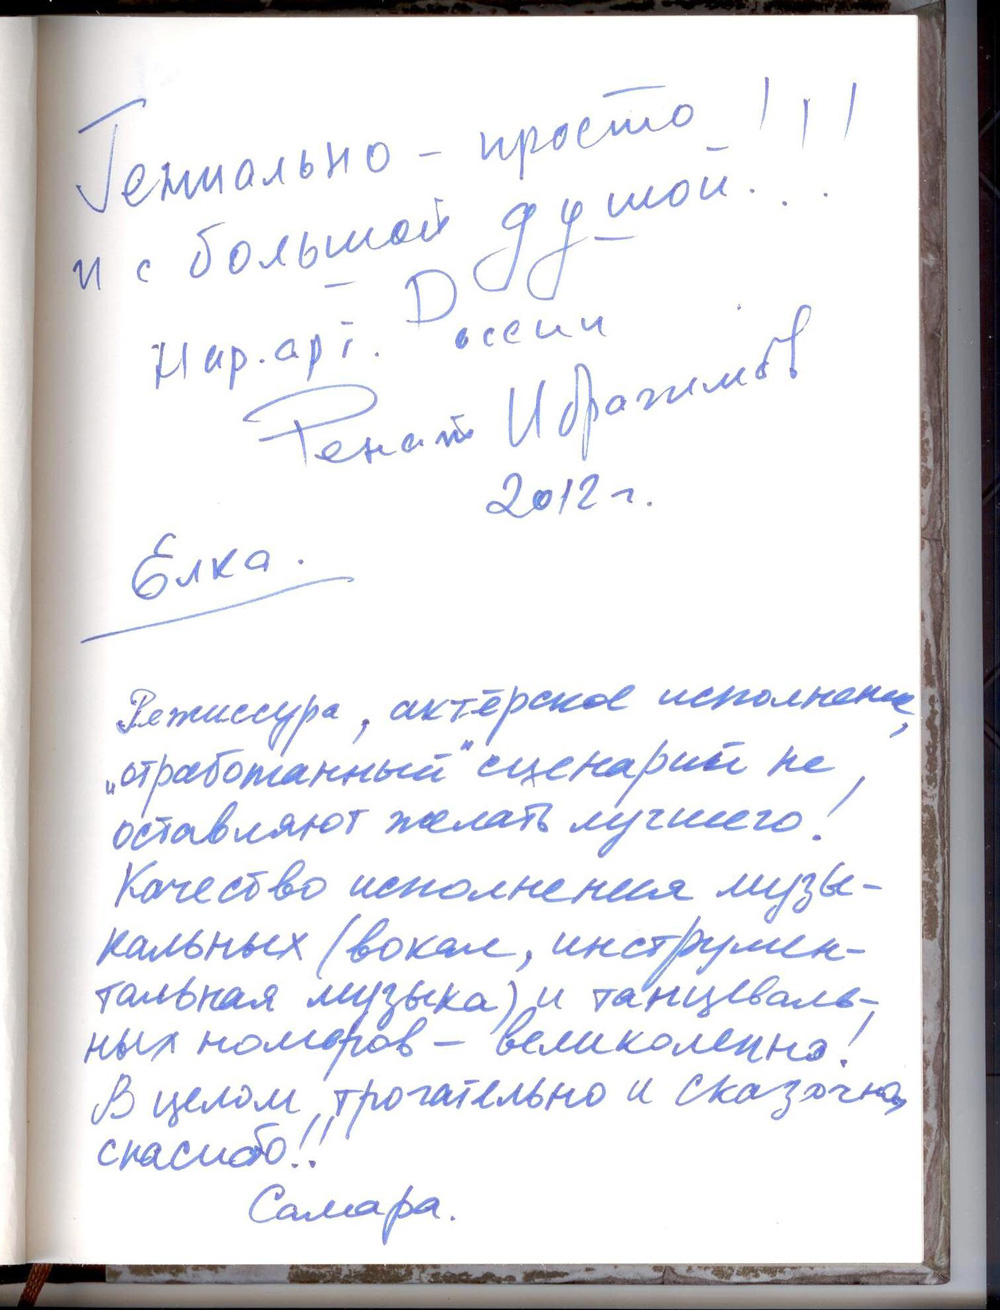 Гениально – просто!!!
и с большой душой...
Нар. арт. России
Ренат Ибрагимов
2012 г.
Ёлка.
Режиссура, актёрское исполнение,
„отработанный" сценарий не
оставляют желать лучшего!
Качество исполнения музы-
кальных (вокал, инструмен-
тальная музыка) и танцеваль-
ных номеров – великолепно!
В целом, трогательно и сказочно,
спасибо!!
Самара.